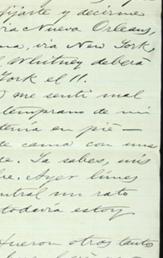 fijarte y decirme
vía Nueva Orleans,
na, vía New York
l Whitney deberá
York el 11.
me sentí mal
temprano de mi
tenía en pie—
te cama con uns
ce. Ya sabes, mis
re. Ayer lúnes
ntral un rato
todavía estoy
fueron otros tanto